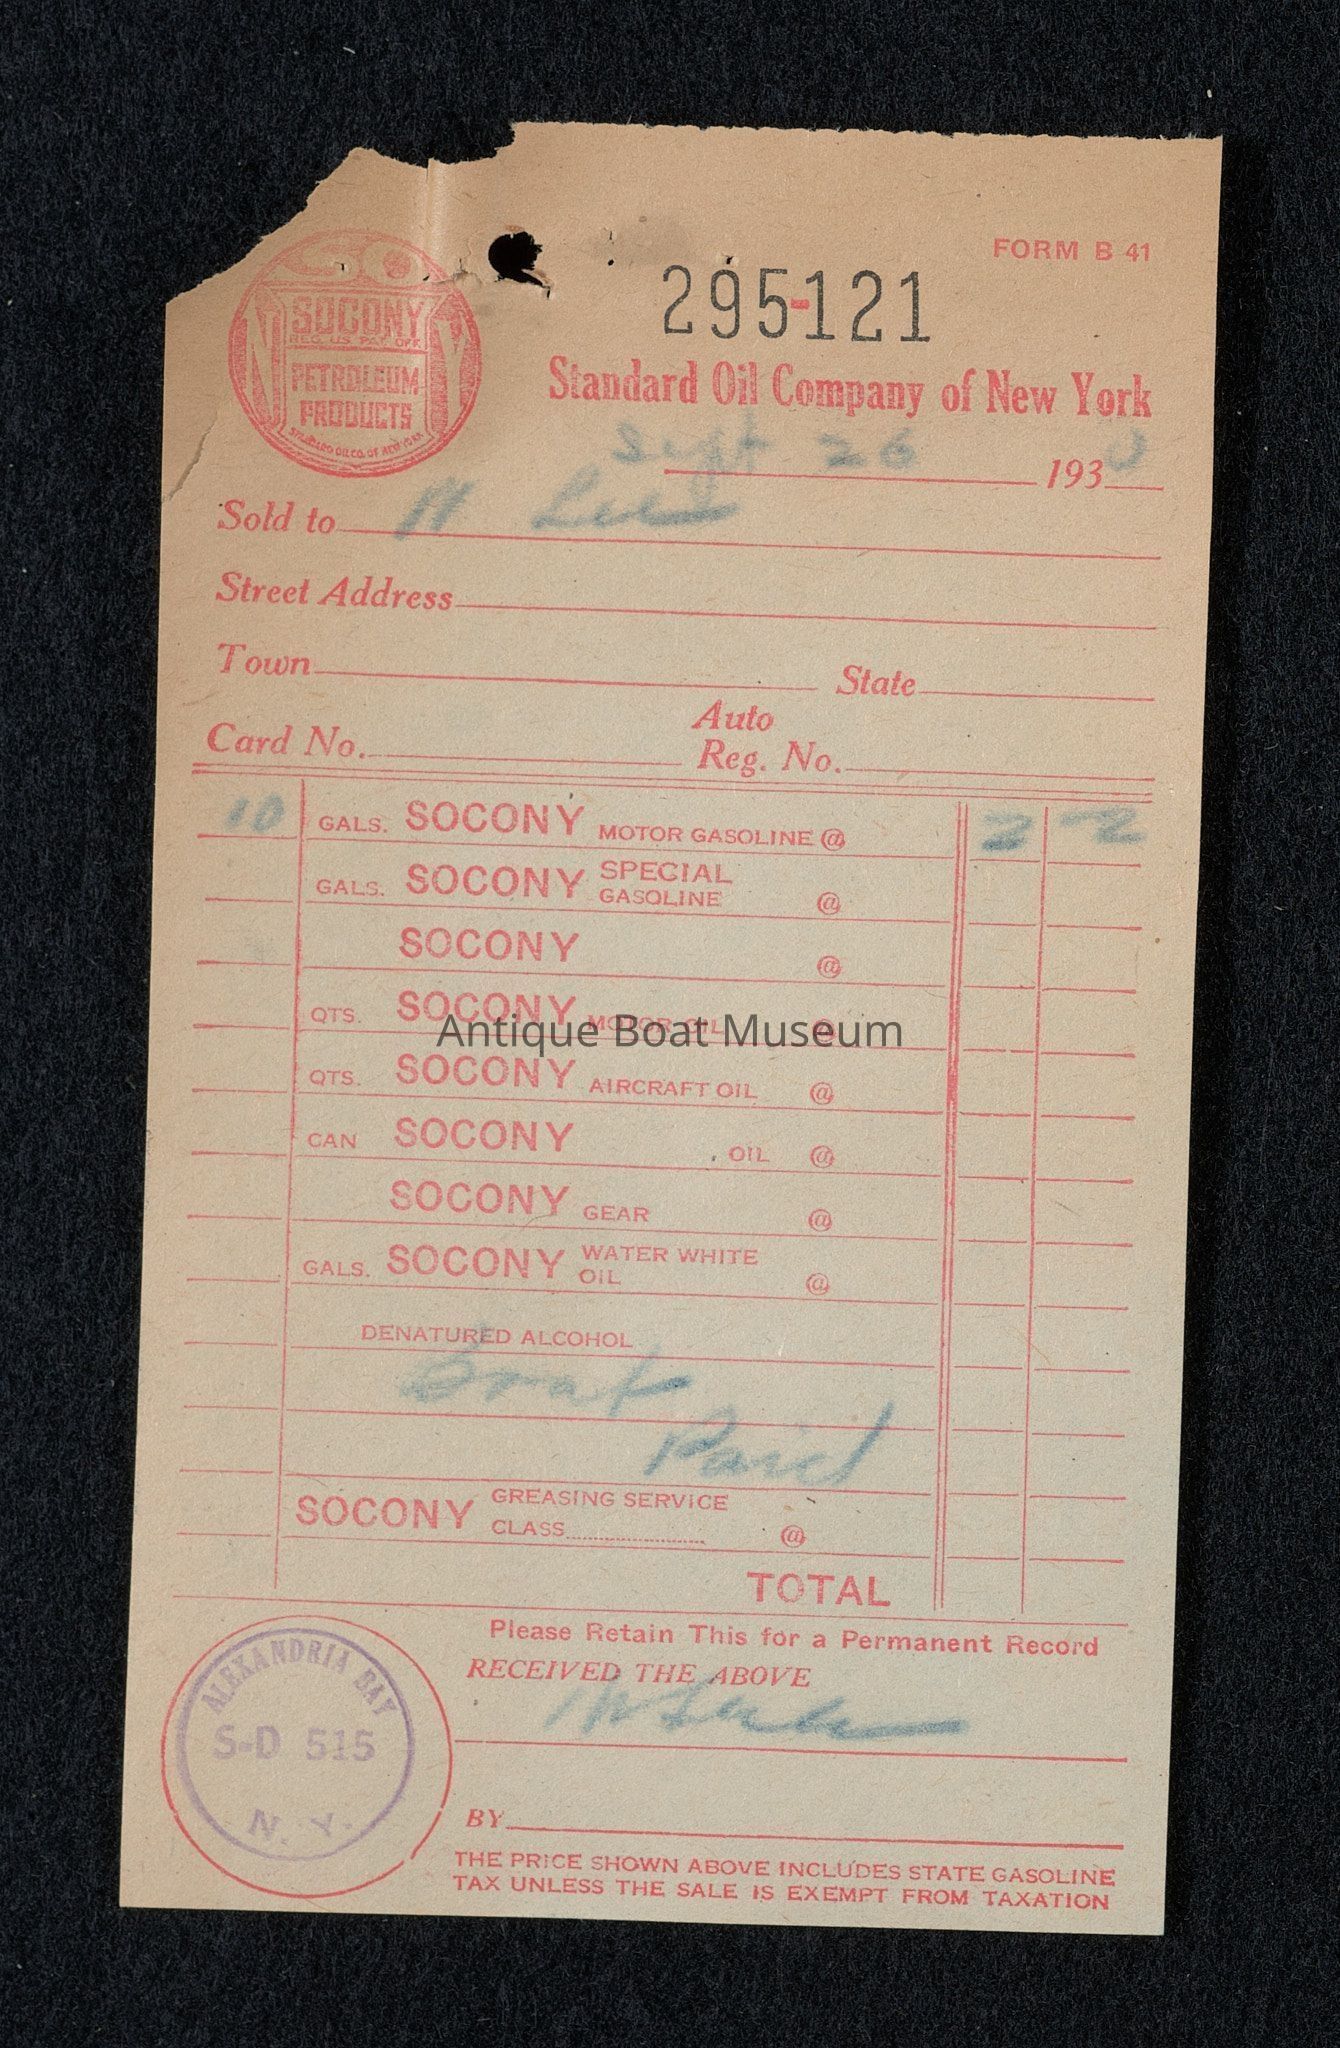 FORM B 41
295-121
SO
NY
SOCONY
REG. U.S. PAT. OFF.
PETROLEUM
PRODUCTS
STANDARD OIL CO. OF NEW YORK
Standard Oil Company of New York
Sept 26 1930
Sold to H Lee
Street Address
Town State
Card No. Auto Reg. No.
10 GALS. SOCONY MOTOR GASOLINE @ 2
GALS. SOCONY SPECIAL GASOLINE @
SOCONY @
QTS. SOCONY MOTOR OIL @
Antique Boat Museum
QTS. SOCONY AIRCRAFT OIL @
CAN SOCONY OIL @
SOCONY GEAR @
GALS. SOCONY WATER WHITE OIL @
DENATURED ALCOHOL
Boat
Paid
SOCONY GREASING SERVICE CLASS @
TOTAL
Please Retain This for a Permanent Record
RECEIVED THE ABOVE
BY
ALEXANDRIA BAY
S-D 515
N. Y.
THE PRICE SHOWN ABOVE INCLUDES STATE GASOLINE
TAX UNLESS THE SALE IS EXEMPT FROM TAXATION